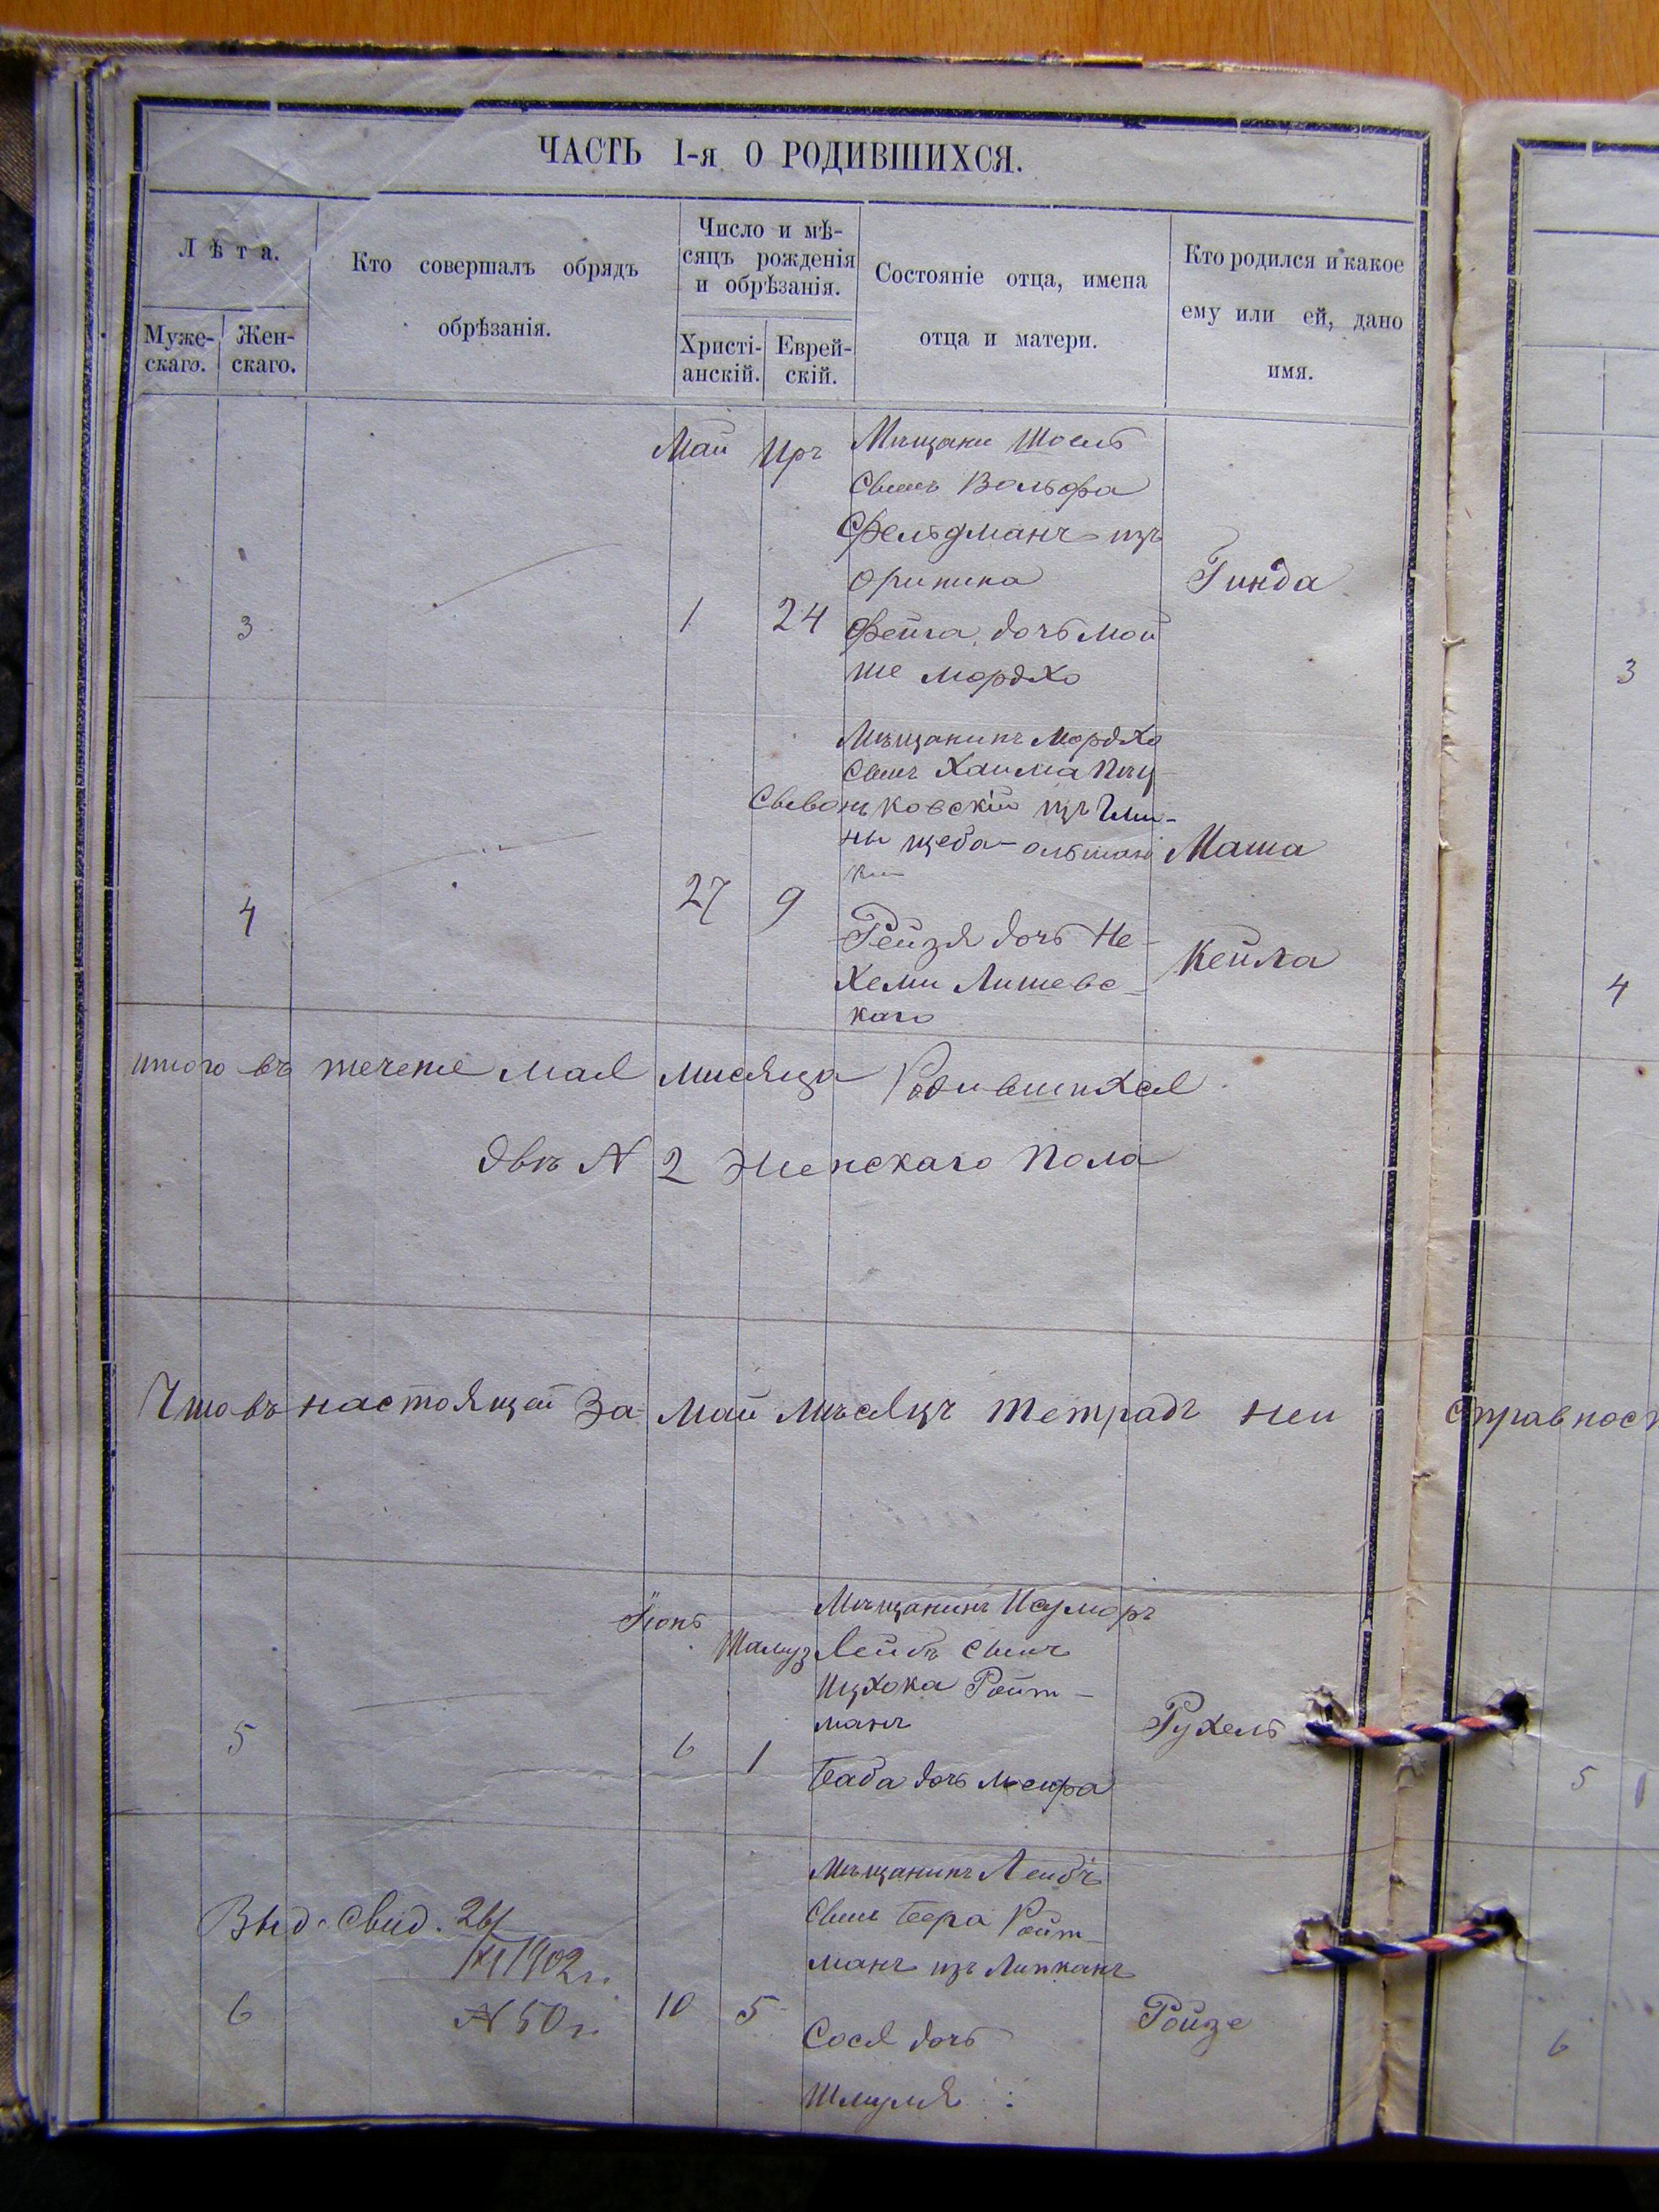 ЧАСТЬ I-я О РОДИВШИХСЯ.
Лѣта.
Муже-
скаго.
Жен-
скаго.
Кто совершалъ обрядъ
обрѣзанія.
Число и мѣ-
сяцъ рожденія
и обрѣзанія.
Христі-
анскій.
Еврей-
скій.
Состояніе отца, имена
отца и матери.
Кто родился и какое
ему или ей, дано
имя.
Май Иръ
3
1
24
Шоель
сынъ Вольфа
Фельдманъ изъ
Фейга дочь Мой
ше Мордхо
Гинда
4
27
9
Мѣщанинъ Мордхо
сынъ Хаима
ковскій изъ
Рейзя дочь Не-
хеми Лишевс-
каго
Маша
Кейла
итого въ течение мая мисяца Родившихся
двѣ N 2 Женскаго Пола
Что въ настоящей за Май мѣсяцъ тетрадъ неи справност
Июнь
Тамуз
5
6
1
Мѣщанинъ
Лейбъ сынъ
Ицхока Ройт-
манъ
Баба дочь Меира
Рухель
6
Выд. свид. 26/
XI 1902 г.
N 50
10
5
Мѣщанинъ Леибъ
сынъ Бера Ройт-
манъ изъ Липканъ
Сося дочь
Шмуля
Ройзе
3
4
5
6